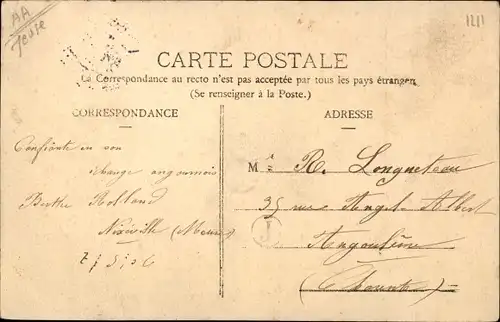 AA
Teste
1211
CARTE POSTALE
La Correspondance au recto n'est pas acceptée par tous les pays étrangers
(Se renseigner à la Poste.)
CORRESPONDANCE
Confiante en son
échange angoumois
Berthe Rolland
Nixéville (Meuse)
2/5/06
ADRESSE
M R. Longueteau
35 rue Angel. Albert
J
Angoulême
(Charente)